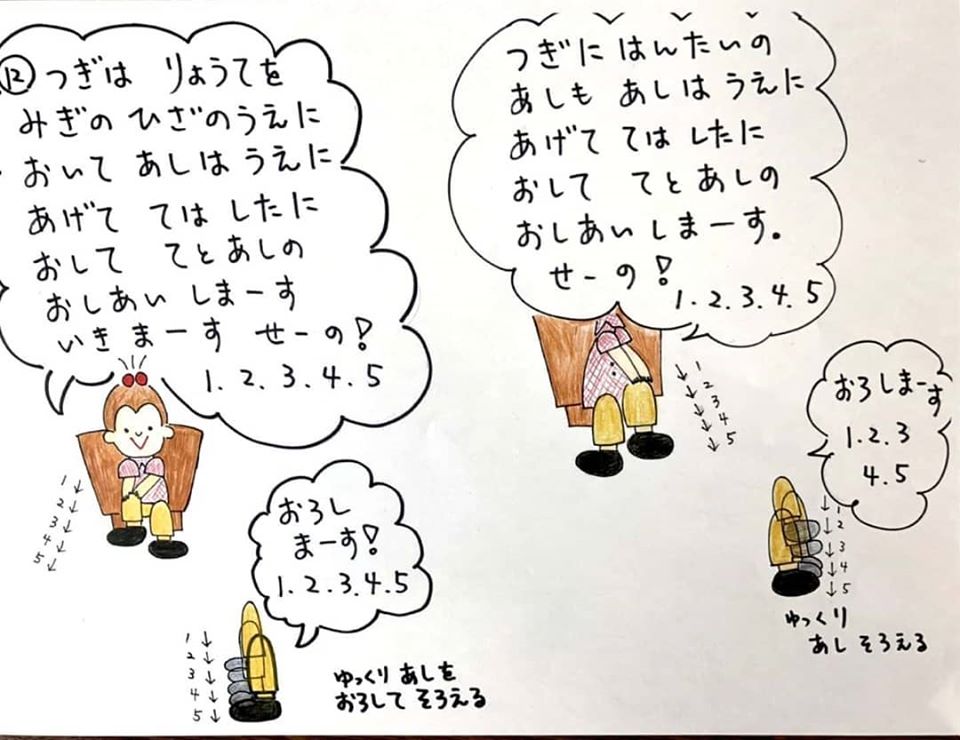 ⑫ つぎは りょうてを
みぎの ひざのうえに
おいて あしは うえに
あげて ては したに
おして てと あしの
おしあい しまーす
いきまーす せーの!
1.2.3.4.5
1↓
2↓
3↓
4↓
5↓
おろし
まーす!
1.2.3.4.5
1↓
2↓
3↓
4↓
5↓
ゆっくり あしを
おろして そろえる
つぎに はんたいの
あしも あしは うえに
あげて ては したに
おして てと あしの
おしあい しまーす。
せーの!
1.2.3.4.5
↓1
↓2
↓3
↓4
↓5
おろしまーす
1.2.3
4.5
↓1
↓2
↓3
↓4
↓5
ゆっくり
あし そろえる